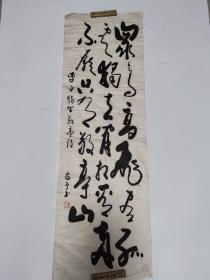 眾鳥高飛盡孤
雲獨去閒相看兩
不厭只有敬亭山
李白獨坐敬亭